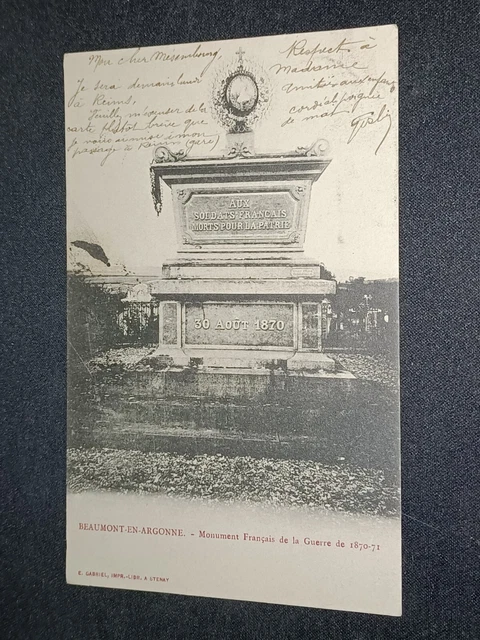 Mon cher Mésembourg,
Je serai demain lundi
à Reims,
Veuillez m'excuser de la
carte plutôt brève que
Je vous
passage à Reims (gare)
Respect. à
Madame
Amitiés aux enfants
cordiale poignée
de main
AUX
SOLDATS FRANÇAIS
MORTS POUR LA PATRIE
30 AOÛT 1870
BEAUMONT-EN-ARGONNE. - Monument Français de la Guerre de 1870-71
E. GABRIEL, IMPR.-LIBR. A STENAY